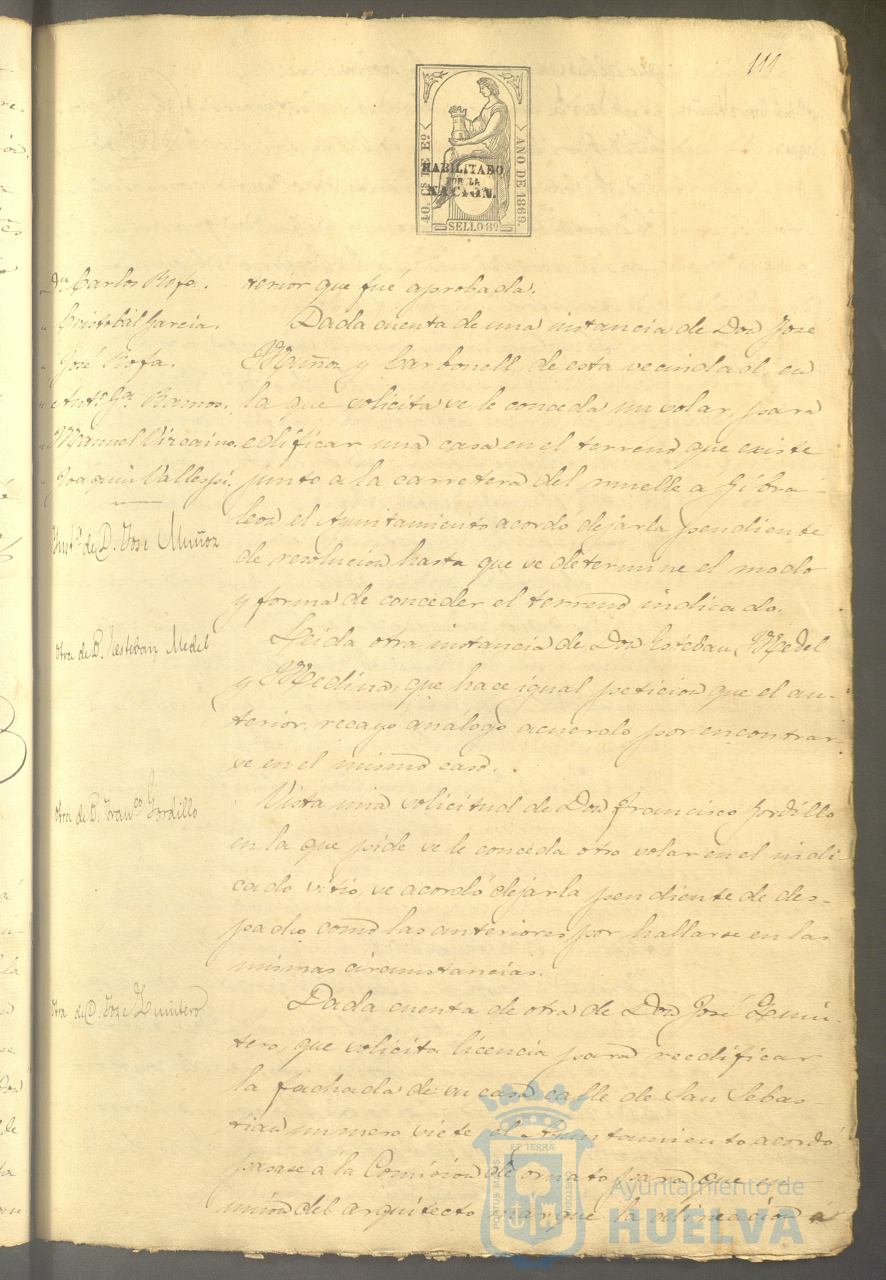 119
40. CS DE Eº
AÑO DE 1869.
HABILITADO
POR LA
NACION.
SELLO 8º
Dn Carlos Rofa.
" Cristobal Garcia.
" José Rofa.
" Antº Gª Ramos.
" Manuel Vizcaino.
" Joaquin Vallespi.
terior que fué aprobada.
Dada cuenta de una instancia de Don Jose
Muñoz y Carbonell, de esta vecindad, en
la que solicita se le conceda un solar, para
edificar una casa en el terreno que existe
junto a la carretera del muelle a Gibra-
leon el Ayuntamiento acordó dejarla pendiente
de resolucion hasta que se determine el modo
y forma de conceder el terreno indicado.
Instª de D. Jose Muñoz
Otra de D. Esteban Medel
Leida otra instancia de Don Esteban Medel
y Medina, que hace igual peticion que el an-
terior, recayó análogo acuerdo por encontrar-
se en el mismo caso.
Otra de D. Franco Gordillo
Vista una solicitud de Don Francisco Gordillo
en la que pide se le conceda otro solar en el indi-
cado sitio, se acordó dejarla pendiente de des-
pacho como las anteriores por hallarse en las
mismas circunstancias.
Otra de D. Jose Quintero
Dada cuenta de otra de Don José Quin-
tero, que solicita licencia para reedificar
la fachada de su casa calle de San Sebas-
tian número siete el Ayuntamiento acordó
pasase á la Comision de ornato para que en
union del arquitecto marque la alineacion á
PORTUS MARIS
ET TERRA
CUSTODIA
Ayuntamiento de
HUELVA